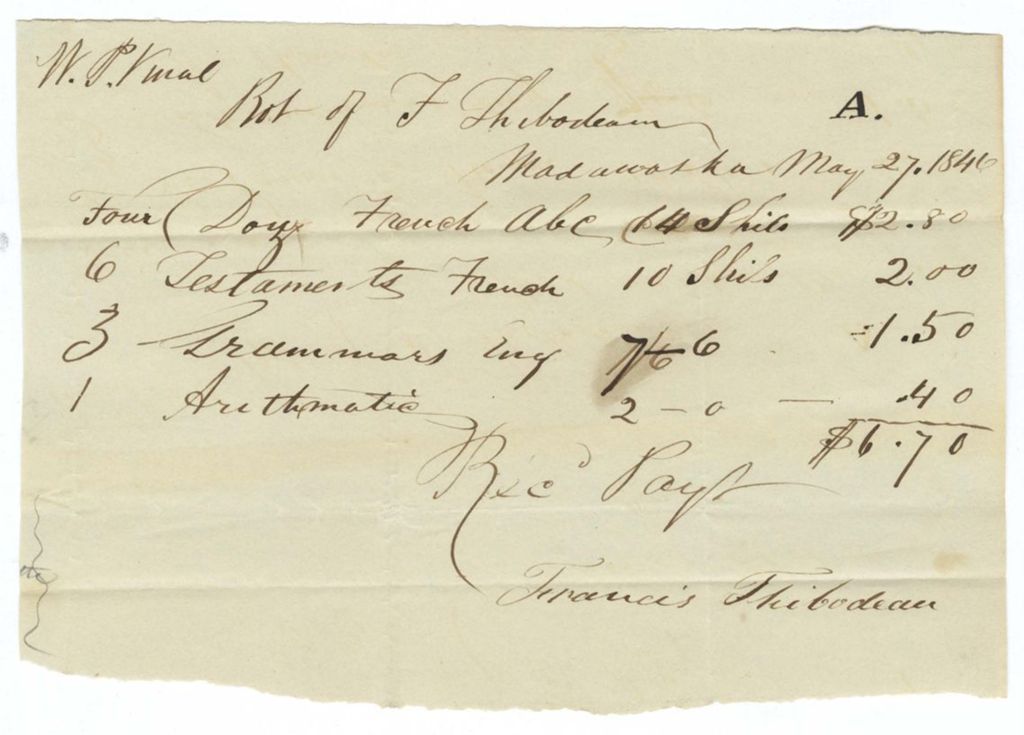 W. P. Vinal
Bot of F Thibodeau
A.
Madawaska May 27. 1846
Four Doz French Abc 14 Shils $2.80
6 Testaments French 10 Shils 2.00
3 Grammars Eng 7/6 6 - 1.50
1 Arithmatic 2 - 0 - .40
$6.70
Recd Payt
Francis Thibodeau